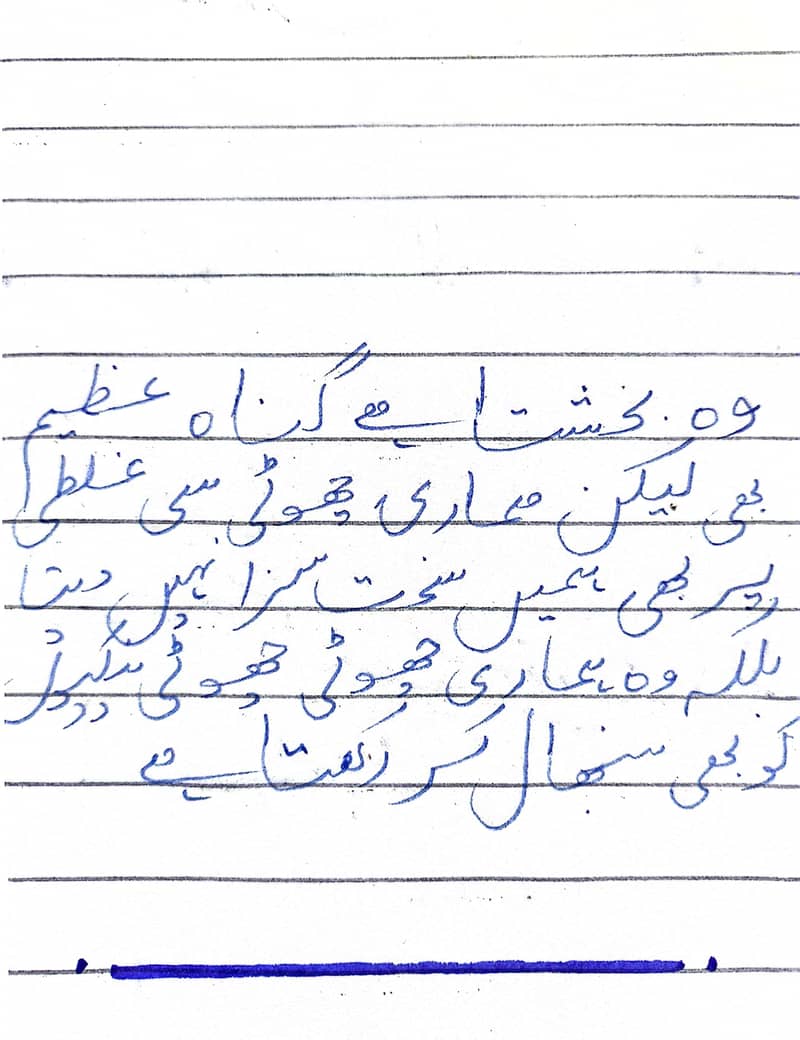 وہ بخشتا ہے گناہ عظیم
بھی لیکن ہماری چھوٹی سی غلطی
پر بھی ہمیں سخت سزا نہیں دیتا
بلکہ وہ ہماری چھوٹی چھوٹی نیکیوں
کو بھی سنبھال کر رکھتا ہے